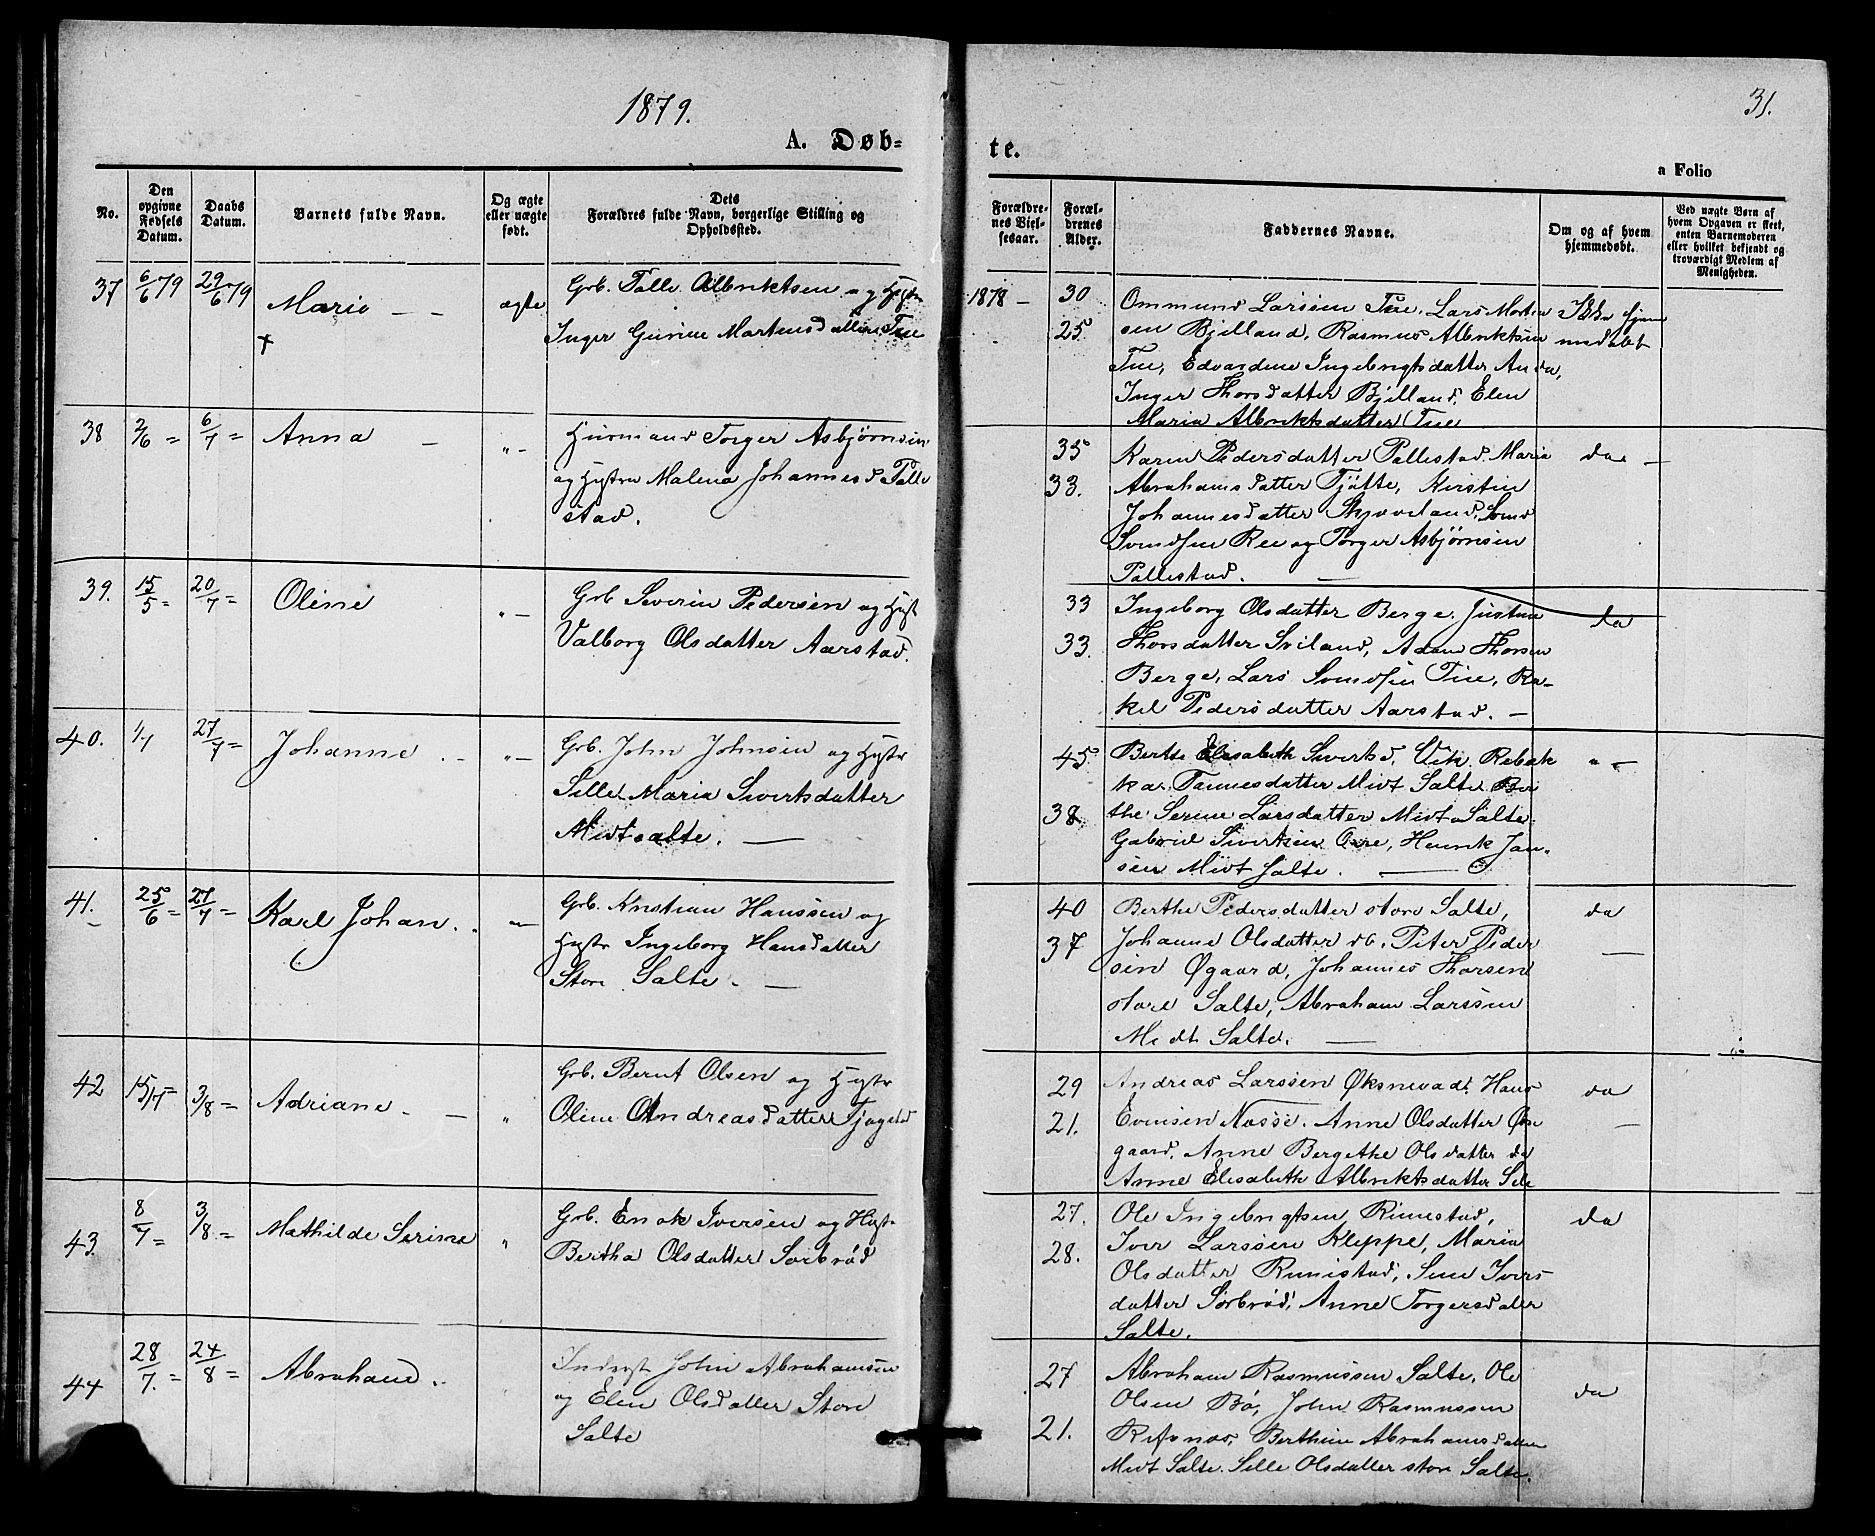 1879.
31.
A. Døb=
te.
a Folio
No.
Den opgivne Fødsels Datum.
Daabs Datum.
Barnets fulde Navn.
Og ægte eller uægte født.
Dets Forældres fulde Navn, borgerlige Stilling og Opholdssted.
Forældrenes Vielsesaar.
Forældrenes Alder.
Faddernes Navne.
Om og af hvem hjemmedøbt.
Ved uægte Børn af hvem Opgaven er skeet, enten Barnemoderen eller hvilket bekjendt og troværdigt Medlem af Menigheden.
37 6/6 79 29/6 79 Marie — — ægte Grb. Tolle Albriktsen og Hustr
† Inger Gurine Martensdatter Tue
1878 — 30 Ommund Larssen Tue. Lars Morten
25 sen Bjelland, Rasmus Albriktsen
Tue, Edvardine Ingebrigtsdatter Anda,
Inger Thorsdatter Bjelland, Elen
Maria Albriktsdatter Tue
Ikke hjem
medøbt
38 2/6 = 6/7 = Anna — „ — Huusmand Torger Asbjørnsen
og Hustru Malena Johannesd Palle
stad.
35 Karen Pedersdatter Pallestad, Maria da —
33. Abrahamsdatter Tjøtte, Kirstin
Johannesdatter Skjæveland, Svend
Svendsen Ree og Torger Asbjørnsen
Pallestad. —
39. 15/5 = 20/7 = Oline „ — Grb Severin Pedersen og Hust
Valborg Olsdatter Aarstad.
33 Ingeborg Olsdatter Berge. Justine da
33. Thorsdatter Sviland, Adam Thorsen
Berge, Lars Svendsen Tue, Ra-
kel Pedersdatter Aarstad. —
40. 1/7 27/7 = Johanne . — „ — Grb. John Johnsen og Hustr
Sille Maria Sivertsdatter
Midtsalte. —
45 Berthe Elisabeth Sivertsd. Vik, Rebek „ —
ka Tønnesdatter Midt Salte Ber
38 the Serine Larsdatter Midt Salte.
Gabriel Sivertsen Orre, Henrik Jan-
sen Midt Salte. —
41. 25/6 = 27/7 = Karl Johan. . — Grb. Kristian Hanssen og
Hustr Ingeborg Hansdatter
Store Salte. —
40 Berthe Pedersdatter store Salte, da
37 Johanne Olsdatter do. Peter Peder —
sen Øgaard, Johannes Thorsen
store Salte, Abraham Larssen
Midt Salte. —
42. 15/7 = 3/8 = Adriane. — „ Grb. Bernt Olsen og Hustr
Oline Andreasdatter Tjøgestad
29 Andreas Larssen Øksnevad. Hans da
21. Evensen Næsse. Anne Olsdatter Øre —
gaard, Anne Bergethe Olsdatter do
Anne Elisabeth Albriktsdatter Sele
43. 8/7 = 3/8 = Mathilde Serine „ Grb. Enok Iversen og Hust.
Bertha Olsdatter Sørbrød
27. Ole Ingebrigtsen Rimestad, da
28. Iver Larssen Kleppe, Maria
Olsdatter Rimestad, Sine Ivers-
datter Sørbrød, Anne Torgersdatter
Salte.
44 28/7. = 24/8 = Abraham . Inderst John Abrahamsen
og Elen Olsdatter Store
Salte
27 Abraham Rasmussen Salte, Ole da
Olsen Bø, John Rasmussen
21. Refsnæs, Berthine Abrahamsdatter
Midt Salte. Sille Olsdatter store Salte.